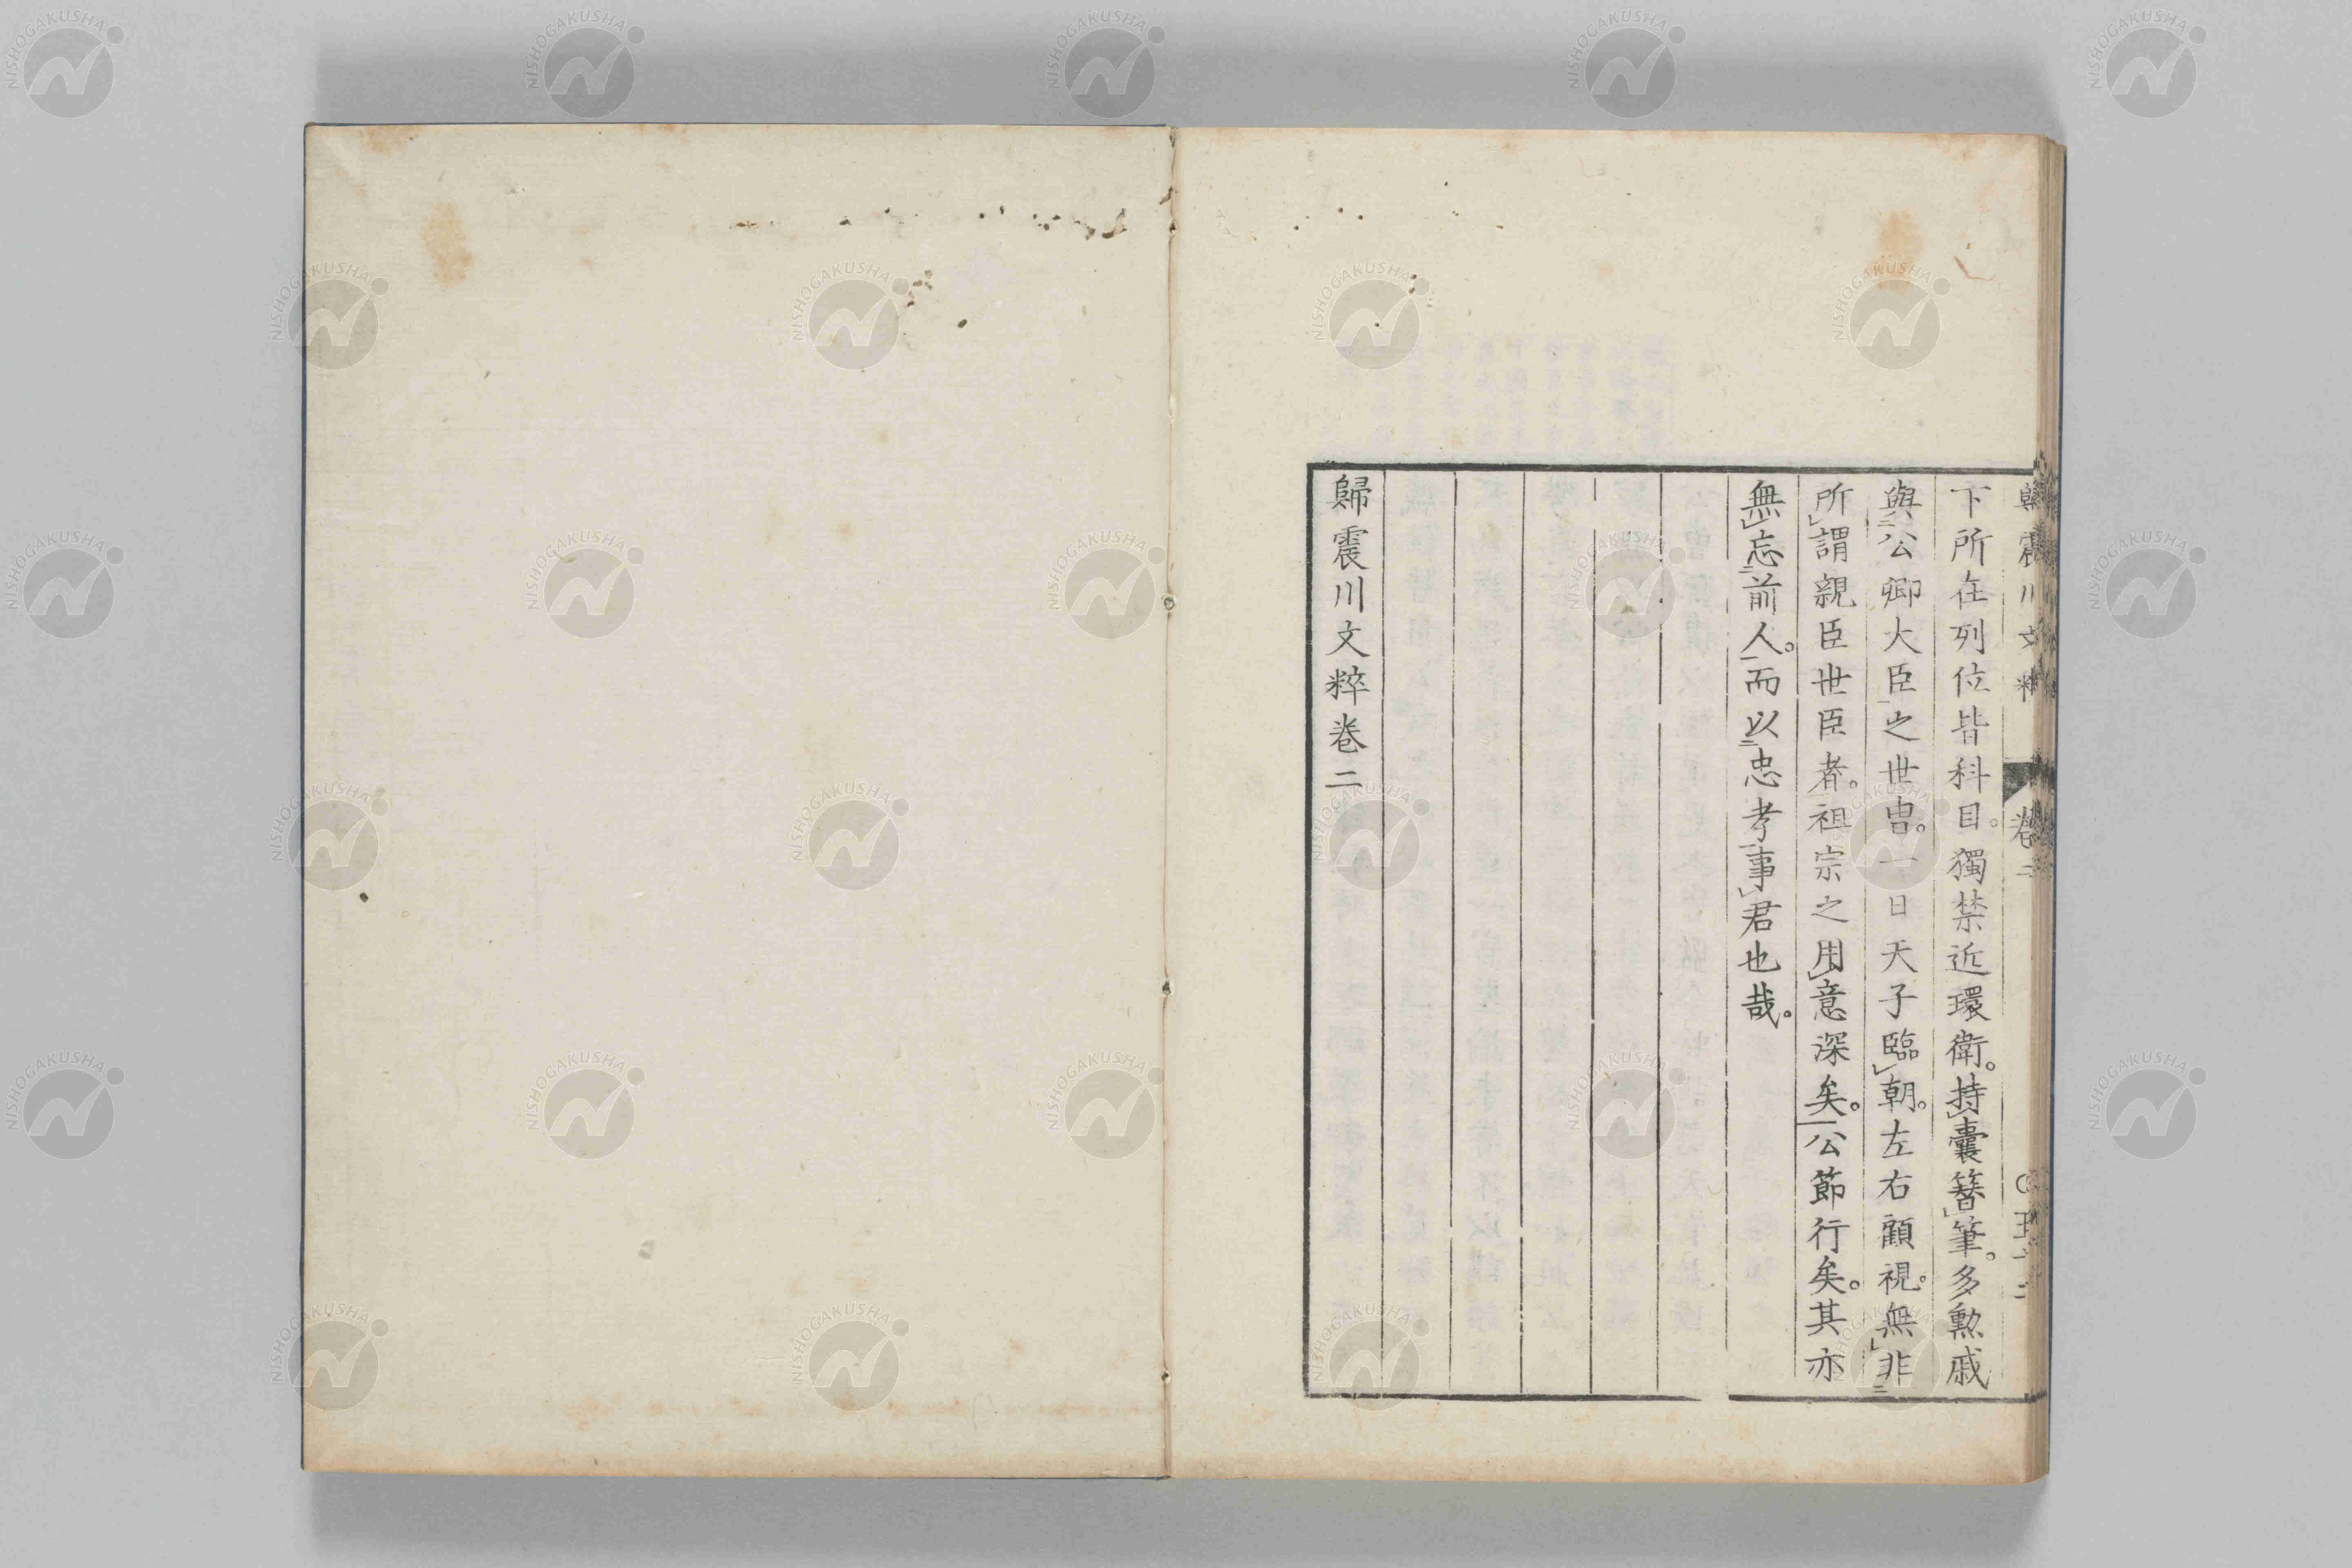 歸震川文粹 卷二 五十二
下所在列位皆科目。獨禁近環衛。持囊簪筆。多勲戚
與公卿大臣之世冑。一日天子臨朝。左右顧視。無非
所謂親臣世臣者。祖宗之用意深矣。公節行矣。其亦
無忘前人。而以忠孝事君也哉。
歸震川文粹卷二